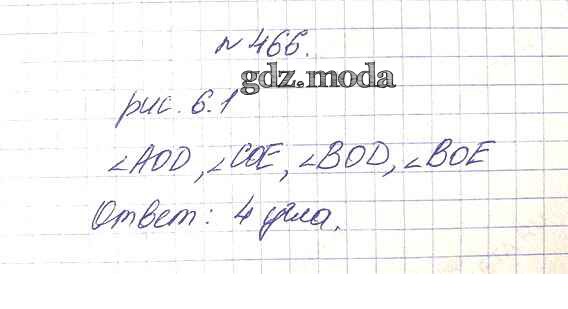 № 466.
gdz.moda
рис. 6.1
∠AOD, ∠COE, ∠BOD, ∠BOE
Ответ: 4 угла.